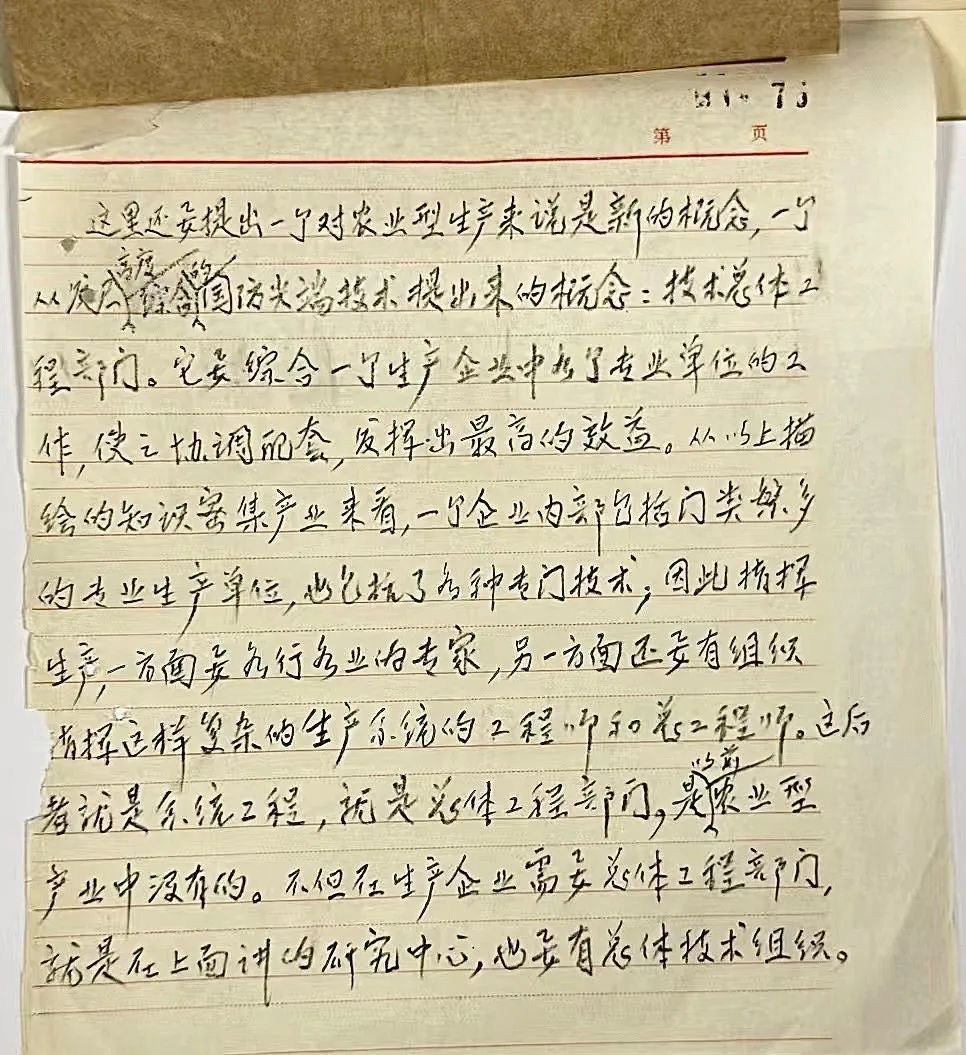 73
第 页
这里还要提出一个对农业型生产来说是新的概念,一个
从发展高度综合的国防尖端技术提出来的概念:技术总体工
程部门。它要综合一个生产企业中各个专业单位的工
作,使之协调配套,发挥出最高的效益。从以上描
绘的知识密集产业来看,一个企业内部包括门类繁多
的专业生产单位,也包括了各种专门技术;因此指挥
生产,一方面要各行各业的专家,另一方面还要有组织
指挥这样复杂的生产系统的工程师和总工程师。这后
者就是系统工程,就是总体工程部门,是以前农业型
产业中没有的。不但在生产企业需要总体工程部门,
就是在上面讲的研究中心,也要有总体技术组织。